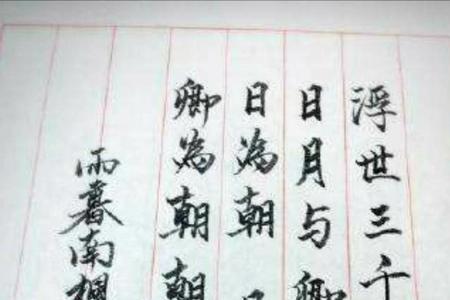 浮世三千
日月与卿
日為朝
卿為朝朝
雨暮南